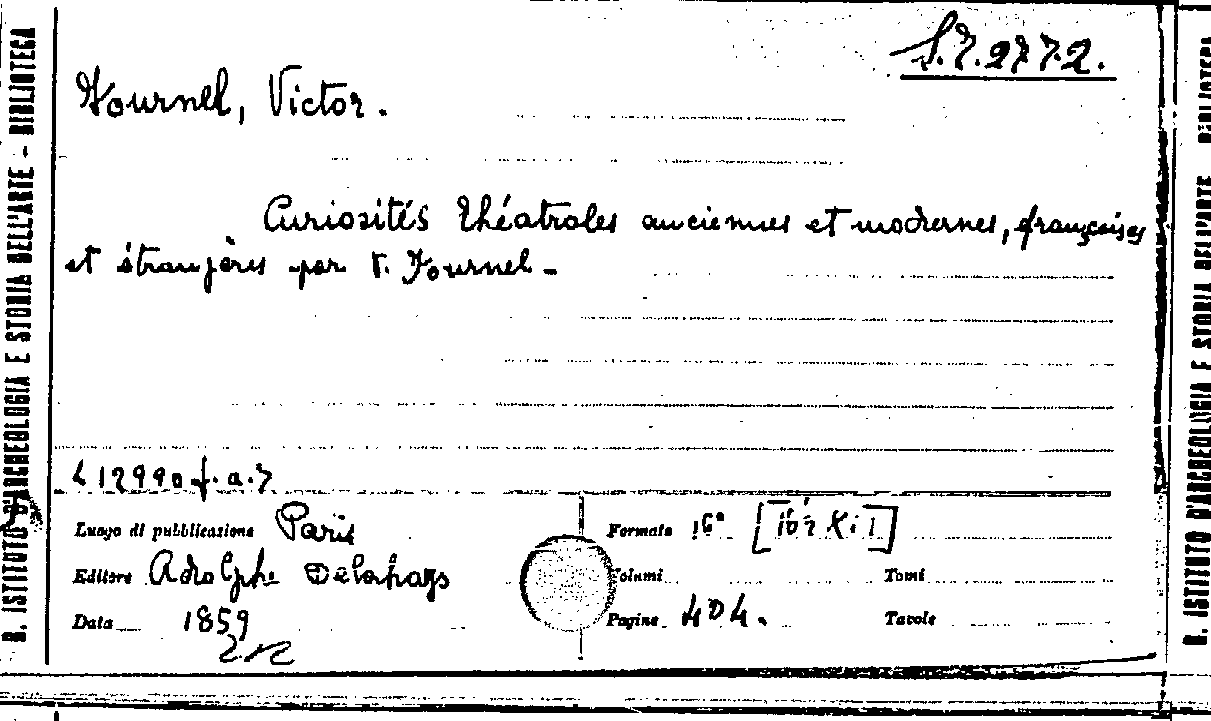 R. ISTITUTO D'ARCHEOLOGIA E STORIA DELL'ARTE - BIBLIOTECA
Fournel, Victor.
Curiosités théatrales anciennes et modernes, françaises
et étrangères par V. Fournel -
Luogo di pubblicazione Paris
Formato 16°
Editore Adolphe Delahays
Volumi Tomi
Data 1859
Pagine 404. Tavole
R. ISTITUTO D'ARCHEOLOGIA E STORIA DELL'ARTE BIBLIOTECA